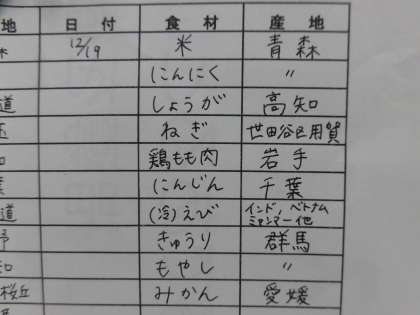 地 日付 食材 産地
12/19 米 青森
にんにく 〃
道 しょうが 高知
ねぎ 世田谷区用賀
鶏もも肉 岩手
にんじん 千葉
道 (冷)えび インド、ベトナム
ミャンマー他
野 きゅうり 群馬
知 もやし 〃
桜丘 みかん 愛媛